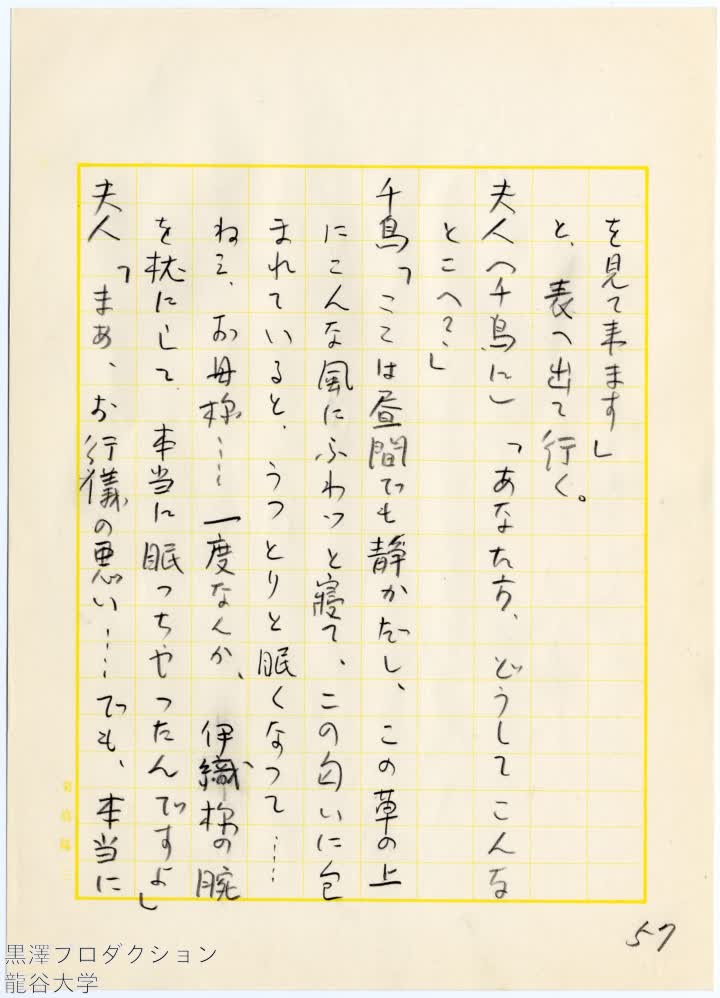 を見て来ます」
と、表へ出て行く。
夫人(千鳥に)「あなた方、どうしてこんな
とこへ?」
千鳥「こゝは昼間でも静かだし、この草の上
にこんな風にふわッと寝て、この匂いに包
まれていると、うつとりと眠くなつて……
ねえ、お母様……一度なんか、伊織様の腕
を枕にして、本当に眠っちやつたんですよ」
夫人「まあ、お行儀の悪い……でも、本当に
57
黒澤プロダクション
龍谷大学